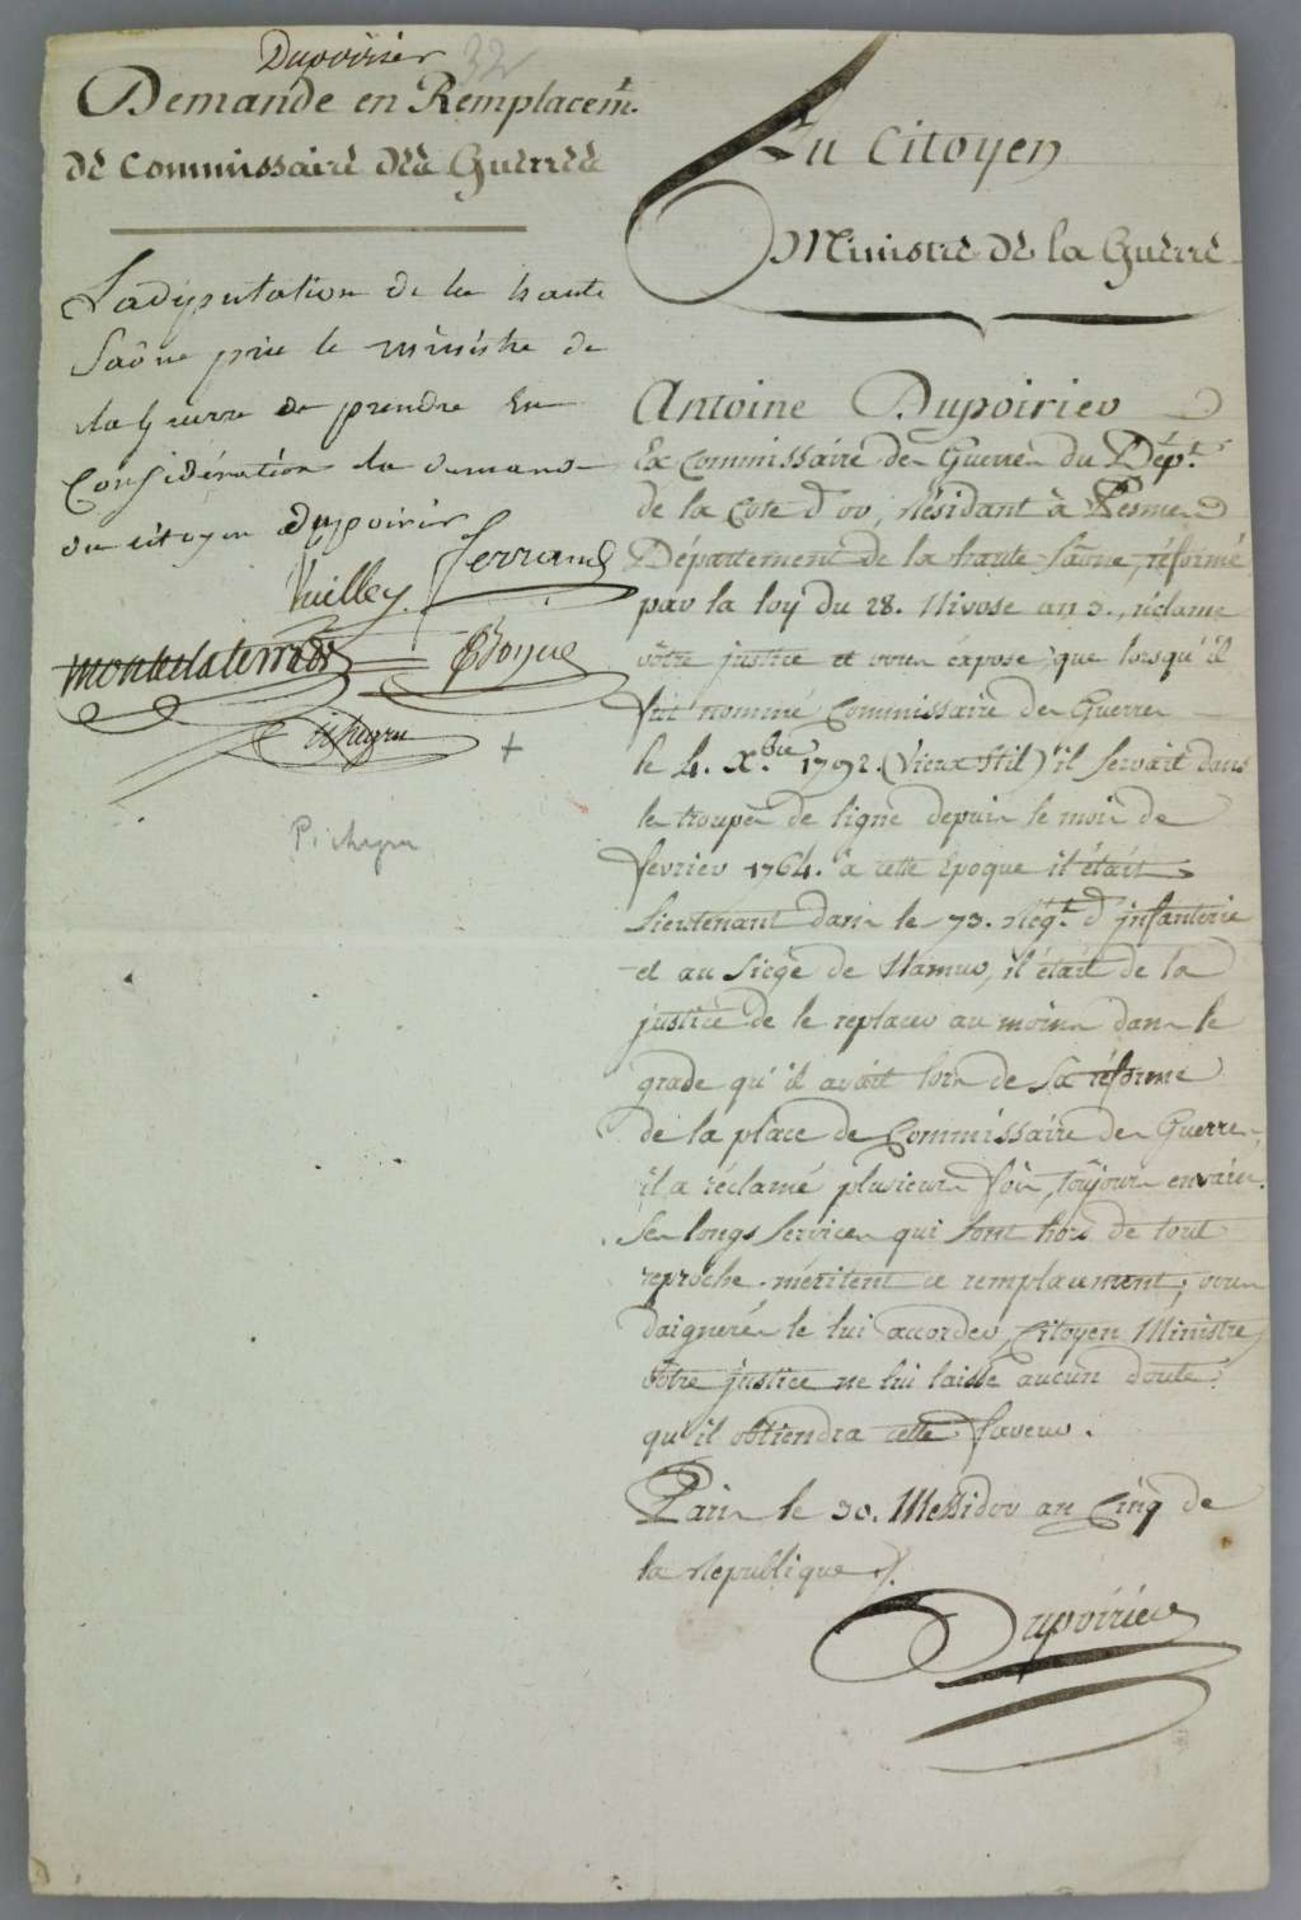 Dupoirier 32
Demande en Remplacemt.
de Commissaire des Guerres
La députation de la haute
Saône prie le ministre de
la guerre de prendre en
Considération la demande
du citoyen dupoirier
Vuilley ferrand
Bolgue
Pichegru
Pichegru
Au Citoyen
Ministre de la Guerre
Antoine Dupoirier
Ex Commissaire des Guerres du Dépt.
de la Cote d'or, résidant à Pesmes
Département de la haute Saône, réformé
par la loy du 28. Nivose an 3., réclame
vôtre justice et vous expose, que lorsqu'il
fut nommé Commissaire des Guerres
le 4. Xbre 1792. (Vieux Stil) il servait dans
les troupes de ligne depuis le mois de
fevrier 1764. à cette époque il était
Lieutenant dans le 73. Régt. d'infanterie
et au siège de Namur, il était de la
justice de le replacer au moins dans le
grade qu'il avait lors de sa réforme
de la place de Commissaire des Guerres,
il a réclamé plusieurs fois, toujours envain.
Ses longs services qui sont hors de tout
reproche méritent ce remplacement; vous
daignerés le lui accorder, Citoyen Ministre,
vôtre justice ne lui laisse aucun doute
qu'il obtiendra cette faveur.
Paris le 30. Messidor an Cinq de
la Republique ./.
Dupoirier